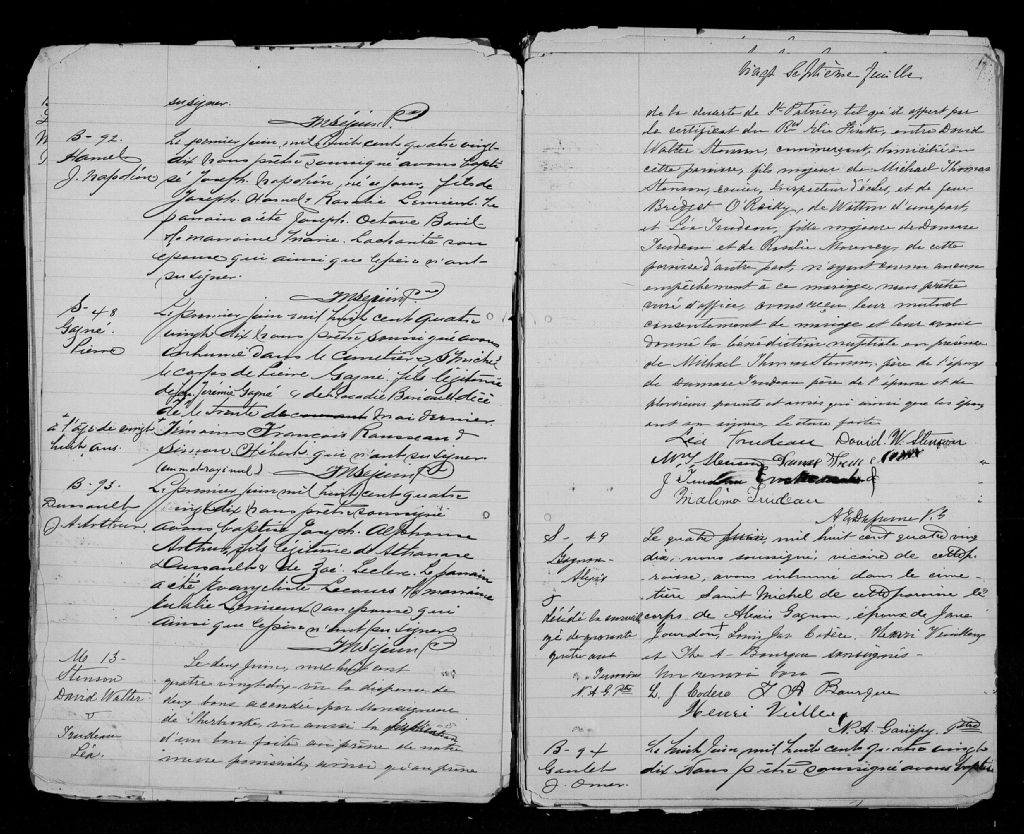 su signer.
B-92.
Hamel
J. Napoléon
Le premier juin, mil huit cent quatre vingt
dix nous prêtre soussigné avons bapti
sé Joseph Napoléon, né ce jour, fils de
Joseph Hamel & Rosalie Lemieux. Le
parrain a été Joseph Octave Baril
& marraine Marie Lachanté son
épouse qui ainsi que le père n'ont
su signer.
S-48
Gagné
Pierre
Le premier juin mil huit cent quatre
vingt dix nous prêtre soussigné avons
inhumé dans le cimetière St Michel
le corps de Pierre Gagné fils légitime
de feu Jérémie Gagné & de Leocadie décé
dé le trente mai dernier
+ à l'âge de vingt
huit ans.
Témoins François Rousseau &
Simeon Hébert qui n'ont su signer
(un mot rayé nul)
B-93.
Dussault
J. A. Arthur
Le premier juin mil huit cent quatre
vingt dix nous prêtre soussigné
avons baptisé Joseph Alphonse
Arthur, fils légitime d'Athanase
Dussault & de Zoé Leclerc. Le parrain
a été Evangeliste Lecours & marraine
Eulalie Lemieux son épouse qui
ainsi que le père n'ont pu signer
M 13-
Stenson
David Walter
&
Trudeau
Léa.
Le deux Juin, mil huit cent
quatre vingt-dix vu la dispense de
deux bans accordée par Monseigneur
de Sherbrooke vu aussi la publication
d'un ban faite au prône de notre
messe paroissiale, ainsi qu'au prône
Vingt Septième feuille
de la desserte de St Patrice, tel qu'il appert par
le certificat du Rvd Elie, entre David
Walter Stenson, commerçant, domicilié en
cette paroisse, fils majeur de Michael Thomas
Stenson, écuier, Inspecteur d'écoles, et de feue
Bridget O'Reilly, de Watton d'une part,
et Léa Trudeau, fille majeure de Damase
Trudeau et de Rosalie, de cette
paroisse d'autre part, n'ayant connu aucun
empêchement à ce mariage, nous prêtre
curé d'office, avons reçu leur mutuel
consentement de mariage et leur avons
donné la bénédiction nuptiale en présence
de Michael Thomas Stenson, père de l'époux
de Damase Trudeau père de l'épouse et de
plusieurs parents et amis qui ainsi que les époux
ont on signé, lecture faite
Léa Trudeau David. W. Stenson
Stenson
J Trudeau
Malina Trudeau
S-49
Gagnon
Alexis
Le quatre juin, mil huit cent quatre vingt
dix, nous soussigné, vicaire de cette pa-
roisse, avons inhumé dans le cime-
tière Saint Michel de cette paroisse le
corps de Alexis Gagnon, époux de Jane
décédé la surveille
âgé de quarante
quatre ans
N. A. G. Ptre
Jourdon, Louis Jos Codère, Henri
et The A Bourque soussignés.
Un renvoi bon
L. J. Codere T A Bourque
Henri Veilleux
N. A. Gariépy, ptre
B-94
Goulet
J. Omer.
Le huit juin mil huit cent quatre vingt
dix Nous prêtre soussigné avons baptisé